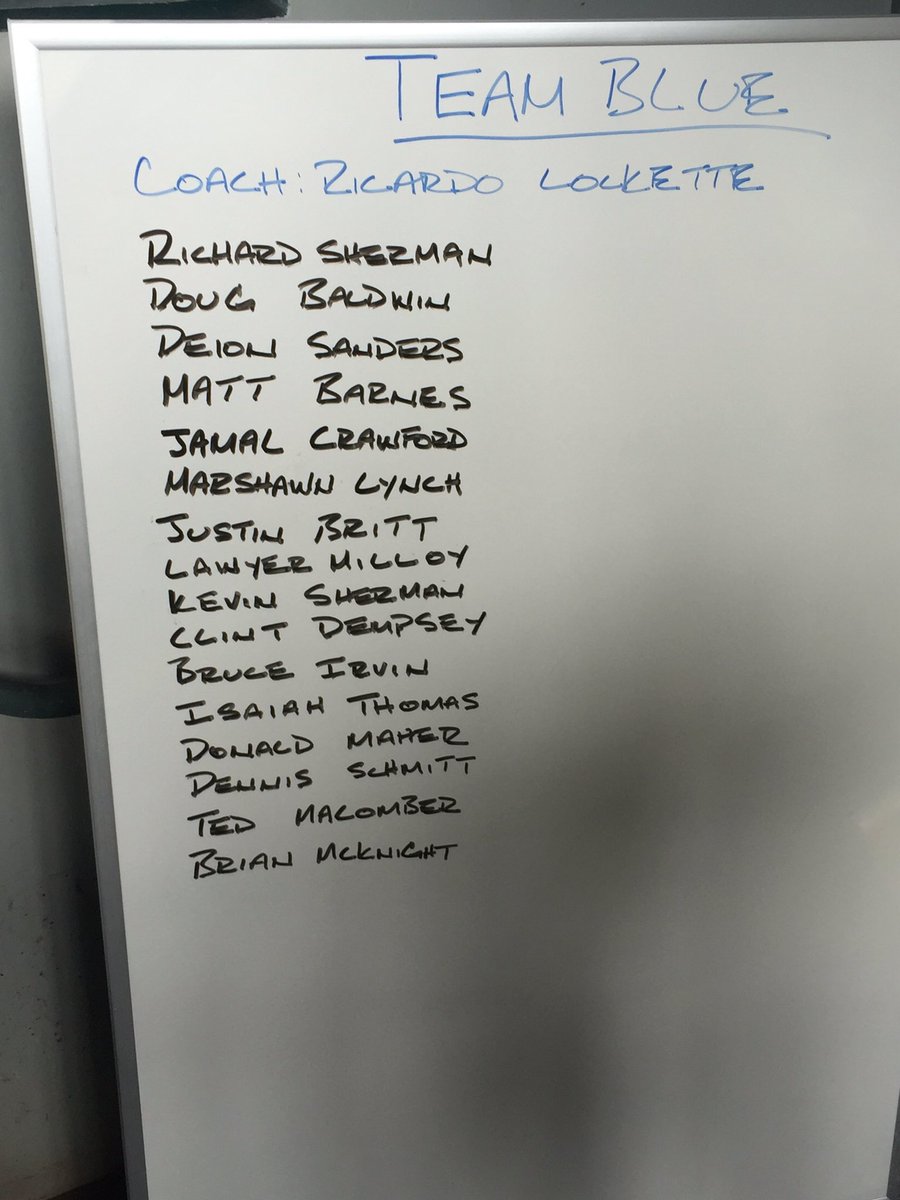 TEAM BLUE
COACH: RICARDO LOCKETTE
RICHARD SHERMAN
DOUG BALDWIN
DEION SANDERS
MATT BARNES
JAMAL CRAWFORD
MARSHAWN LYNCH
JUSTIN BRITT
LAWYER MILLOY
KEVIN SHERMAN
CLINT DEMPSEY
BRUCE IRVIN
ISAIAH THOMAS
DONALD MAHER
DENNIS SCHMITT
TED MACOMBER
BRIAN MCKNIGHT